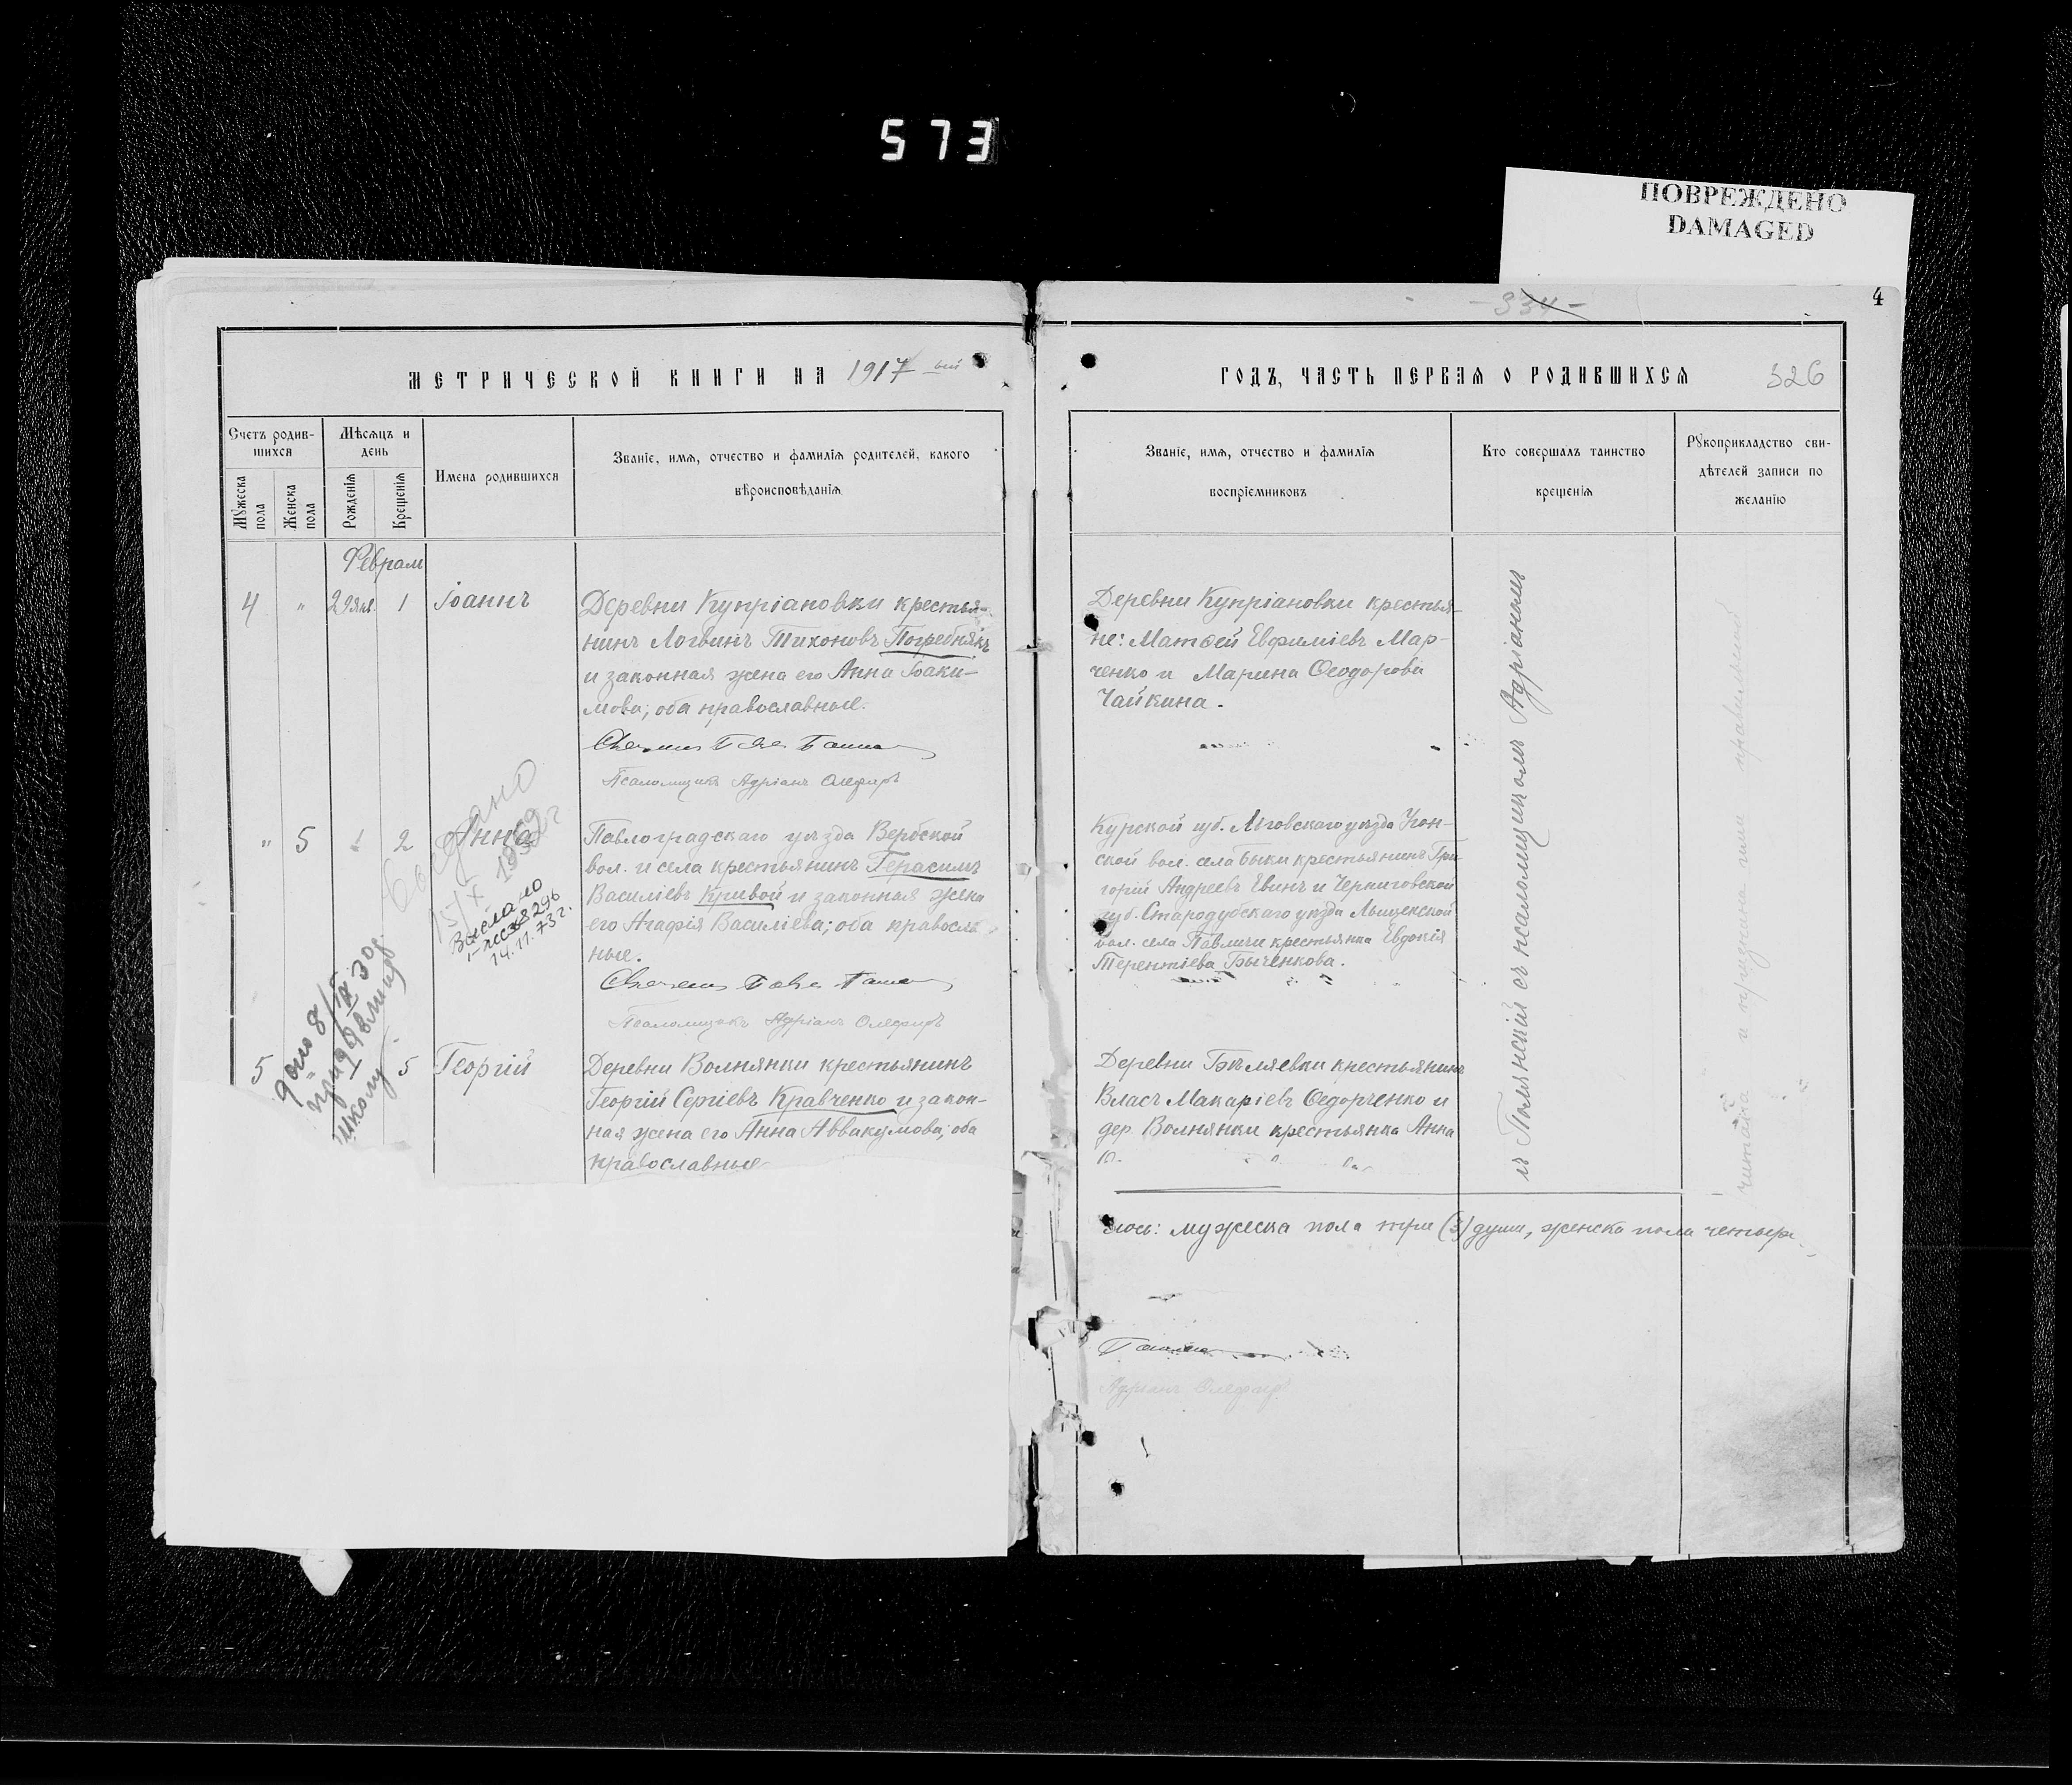 573
ПОВРЕЖДЕНО
DAMAGED
4
334
МЕТРИЧЕСКОЙ КНИГИ НА 1917 ый
ГОДЪ, ЧАСТЬ ПЕРВАЯ О РОДИВШИХСЯ
326
Счетъ родив-
шихся
Мужеска пола
Женска пола
Мѣсяцъ и
день
Рожденія
Крещенія
Имена родившихся
Званіе, имя, отчество и фамилія родителей, какого
вѣроисповѣданія
Званіе, имя, отчество и фамилія
воспріемниковъ
Кто совершалъ таинство
крещенія
Рукоприкладство сви-
дѣтелей записи по
желанію
4 " 29 1 Іоаннъ
Деревни Купріановки крестья-
нинъ Логвинъ Тихоновъ Погребнякъ
и законная жена его Анна Іоаки-
мова; оба православные.
Псаломщикъ Адріанъ Олефиръ
Деревни Купріановки крестья-
не: Матѳей Евфиміевъ Мар-
ченко и Марина Ѳеодорова
Чайкина.
" 5 2 Анна
Павлоградскаго уѣзда Вербской
вол. и села крестьянинъ Герасимъ
Василіевъ Кривой и законная жена
его Агафія Василіева; оба правосла
ные.
Псаломщикъ Адріанъ Олефиръ
Курской губ. Льговскаго уѣзда
ской вол. села Быки крестьянинъ Гри
горій Андреевъ Евинъ и Черниговской
губ. Стародубскаго уѣзда
вол. села крестьянка Евдокія
Терентіева Быченкова.
Выслано
14.11.73г.
школу
5 5 Георгій
Деревни Волнянки крестьянинъ
Георгій Сергіевъ Кравченко и закон-
ная жена его Анна Аввакумова; оба
православные
Деревни Бѣляевки крестьянинъ
Власъ Макаріевъ Ѳедорченко и
дер. Волнянки крестьянка Анна
съ псаломщикомъ Адріаномъ
лось: мужеска пола три (3) души, женска пола четыре
Адріанъ Олефиръ